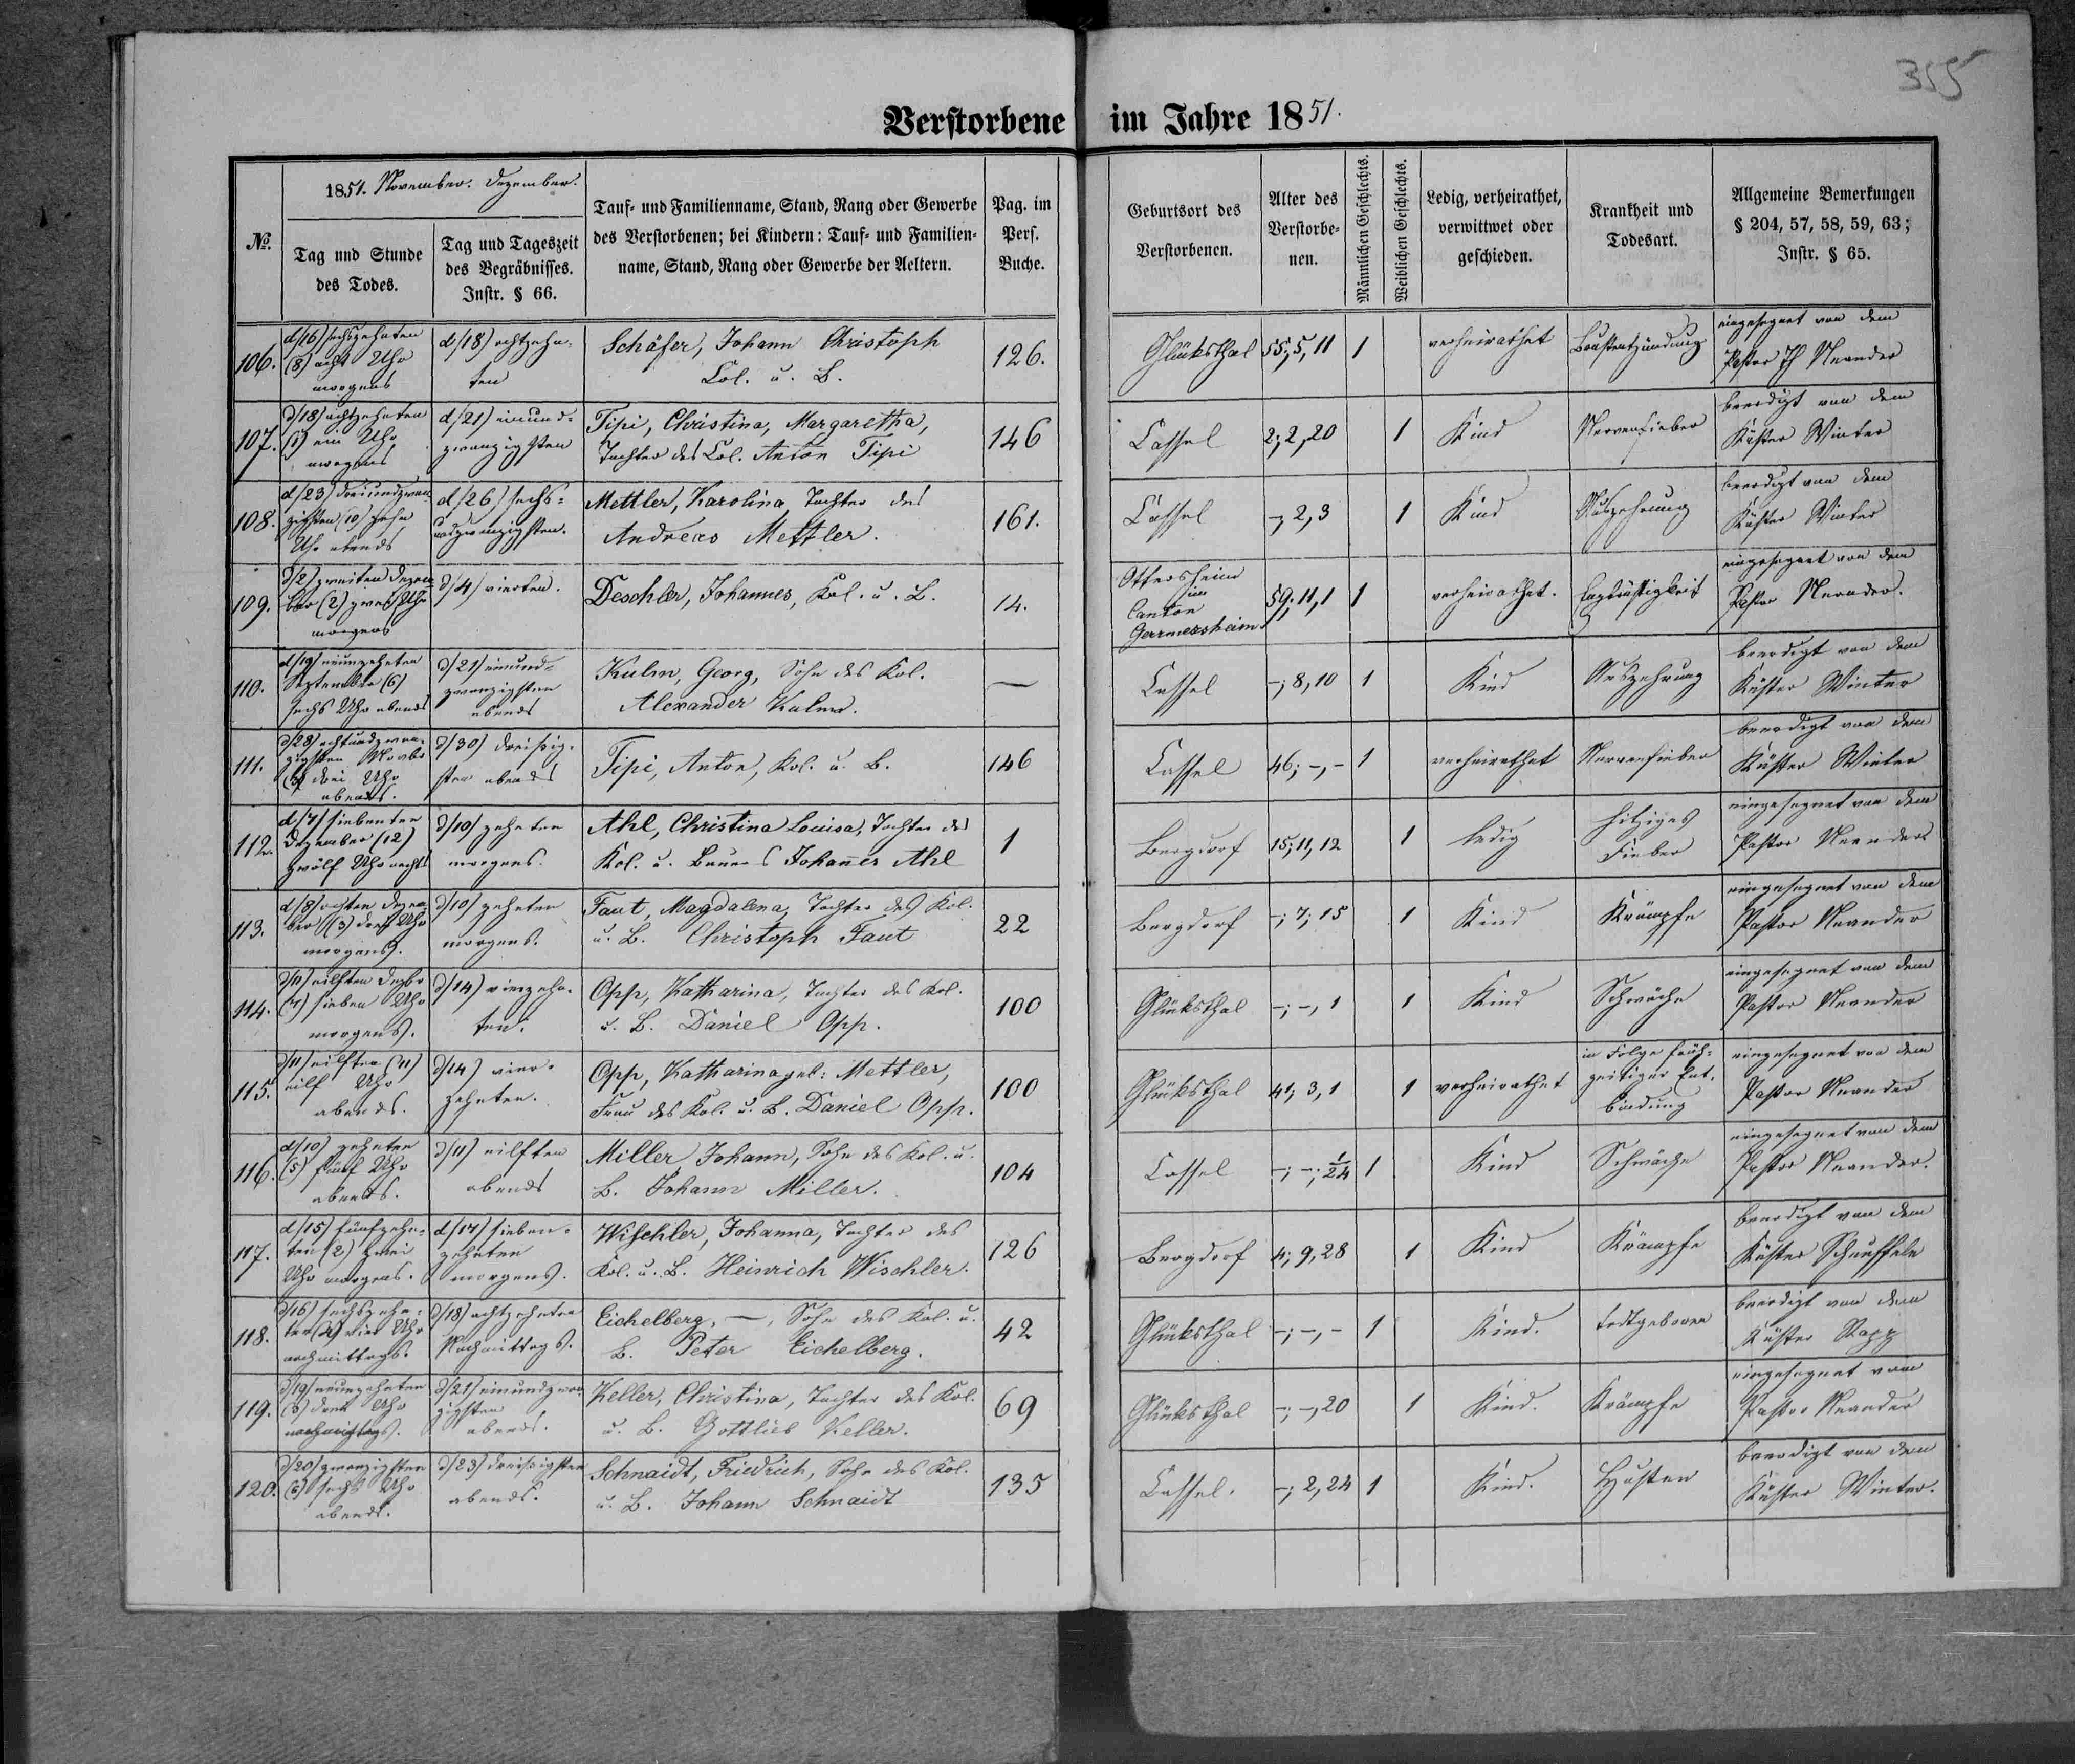 355
Verstorbene im Jahre 1851.
No.
1851. November. Dezember.
Tag und Stunde des Todes.
Tag und Tageszeit des Begräbnisses. Instr. § 66.
Tauf- und Familienname, Stand, Rang oder Gewerbe des Verstorbenen; bei Kindern: Tauf- und Familienname, Stand, Rang oder Gewerbe der Aeltern.
Pag. im Pers. Buche.
Geburtsort des Verstorbenen.
Alter des Verstorbenen.
Männlichen Geschlechts.
Weiblichen Geschlechts.
Ledig, verheirathet, verwittwet oder geschieden.
Krankheit und Todesart.
Allgemeine Bemerkungen § 204, 57, 58, 59, 63; Instr. § 65.
106. d/16/ sechszehnten (8) acht Uhr morgens d/18/ achtzehnten Schäfer, Johann Christoph Col. u. B. 126. Glücksthal 55; 5, 11 1 verheirathet Brustentzündung eingesegnet von dem Pastor Th Neander
107. d/18/ achtzehnten (1) ein Uhr morgens d/21/ einundzwanzigsten Tipi, Christina, Margaretha, Tochter des Col. Anton Tipi 146 Cassel 2; 2, 20 1 Kind Nervenfieber beerdigt von dem Küster Winter
108. d/23/ dreiundzwanzigsten (10) zehn Uhr abends d/26/ sechsundzwanzigsten. Mettler, Karolina, Tochter des Andreas Mettler. 161. Cassel -; 2, 3 1 Kind Auszehrung beerdigt von dem Küster Winter
109. d/2/ zweiten Dezember (2) zwei Uhr morgens d/4/ vierten. Deschler, Johannes, Kol. u. B. 14. Ottersheim im Canton Germersheim 59; 11, 1 1 verheirathet. Engbrüstigkeit eingesegnet von dem Pastor Neander.
110. d/19/ neunzehnten September (6) sechs Uhr abends d/21/ einundzwanzigsten abends Kulm, Georg, Sohn des Kol. Alexander Kulm. — Cassel -; 8, 10 1 Kind Auszehrung beerdigt von dem Küster Winter
111. d/28/ achtundzwanzigsten Novbr (3) drei Uhr abends. d/30/ dreißigsten abends Tipi, Anton, Kol. u. B. 146 Cassel 46; -, - 1 verheirathet Nervenfieber beerdigt von dem Küster Winter
112. d/7/ siebenten Dezember (12) zwölf Uhr nachts d/10/ zehnten morgens. Ahl, Christina Louisa, Tochter des Kol. u. Bauers Johannes Ahl 1 Bergdorf 15; 11, 12 1 ledig hitziges Fieber eingesegnet von dem Pastor Neander
113. d/8/ achten Dezember (3) drei Uhr morgens. d/10/ zehnten morgens. Faut, Magdalena, Tochter des Kol. u. B. Christoph Faut 22 Bergdorf -; 7; 15 1 Kind Krämpfe eingesegnet von dem Pastor Neander
114. d/11/ eilften Dezbr (7) sieben Uhr morgens. d/14/ vierzehnten. Opp, Katharina, Tochter des Kol. u. B. Daniel Opp. 100 Glücksthal -; -, 1 1 Kind Schwäche eingesegnet von dem Pastor Neander
115. d/11/ eilften (11) eilf Uhr abends. d/14/ vierzehnten. Opp, Katharina geb: Mettler, Frau des Kol. u. B. Daniel Opp. 100 Glücksthal 41; 3, 1 1 verheirathet in Folge frühzeitiger Entbindung eingesegnet von dem Pastor Neander
116. d/10/ zehnten (5) fünf Uhr abends. d/11/ eilften abends Miller Johann, Sohn des Kol. u. B. Johann Miller. 104 Cassel -; -; 1/24 1 Kind Schwäche eingesegnet von dem Pastor Neander.
117. d/15/ fünfzehnten (2) zwei Uhr morgens. d/17/ siebenzehnten morgens. Wischler, Johanna, Tochter des Kol. u. B. Heinrich Wischler. 126 Bergdorf 4; 9, 28 1 Kind Krämpfe beerdigt von dem Küster Schauffele
118. d/16/ sechszehnten (4) vier Uhr nachmittags. d/18/ achtzehnten Nachmittags. Eichelberg, —, Sohn des Kol. u. B. Peter Eichelberg. 42 Glücksthal -; -, - 1 Kind. todtgeboren beerdigt von dem Küster Rapp
119. d/19/ neunzehnten (3) drei Uhr nachmittags. d/21/ einundzwanzigsten abends. Keller, Christina, Tochter des Kol. u. B. Gottlieb Keller. 69 Glücksthal -; -, 20 1 Kind. Krämpfe eingesegnet vom Pastor Neander
120. d/20/ zwanzigsten (6) sechs Uhr abends. d/23/ dreißigsten abends. Schnaidt, Friedrich, Sohn des Kol. u. B. Johann Schnaidt 135 Cassel. -; 2, 24 1 Kind. Husten beerdigt von dem Küster Winter.